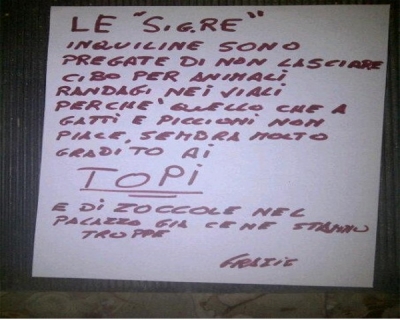 LE "SIG.RE"
INQUILINE SONO
PREGATE DI NON LASCIARE
CIBO PER ANIMALI
RANDAGI NEI VIALI
PERCHE' QUELLO CHE A
GATTI E PICCIONI NON
PIACE, SEMBRA MOLTO
GRADITO AI
TOPI
E DI ZOCCOLE NEL
PALAZZO GIÀ CE NE STANNO
TROPPE
GRAZIE